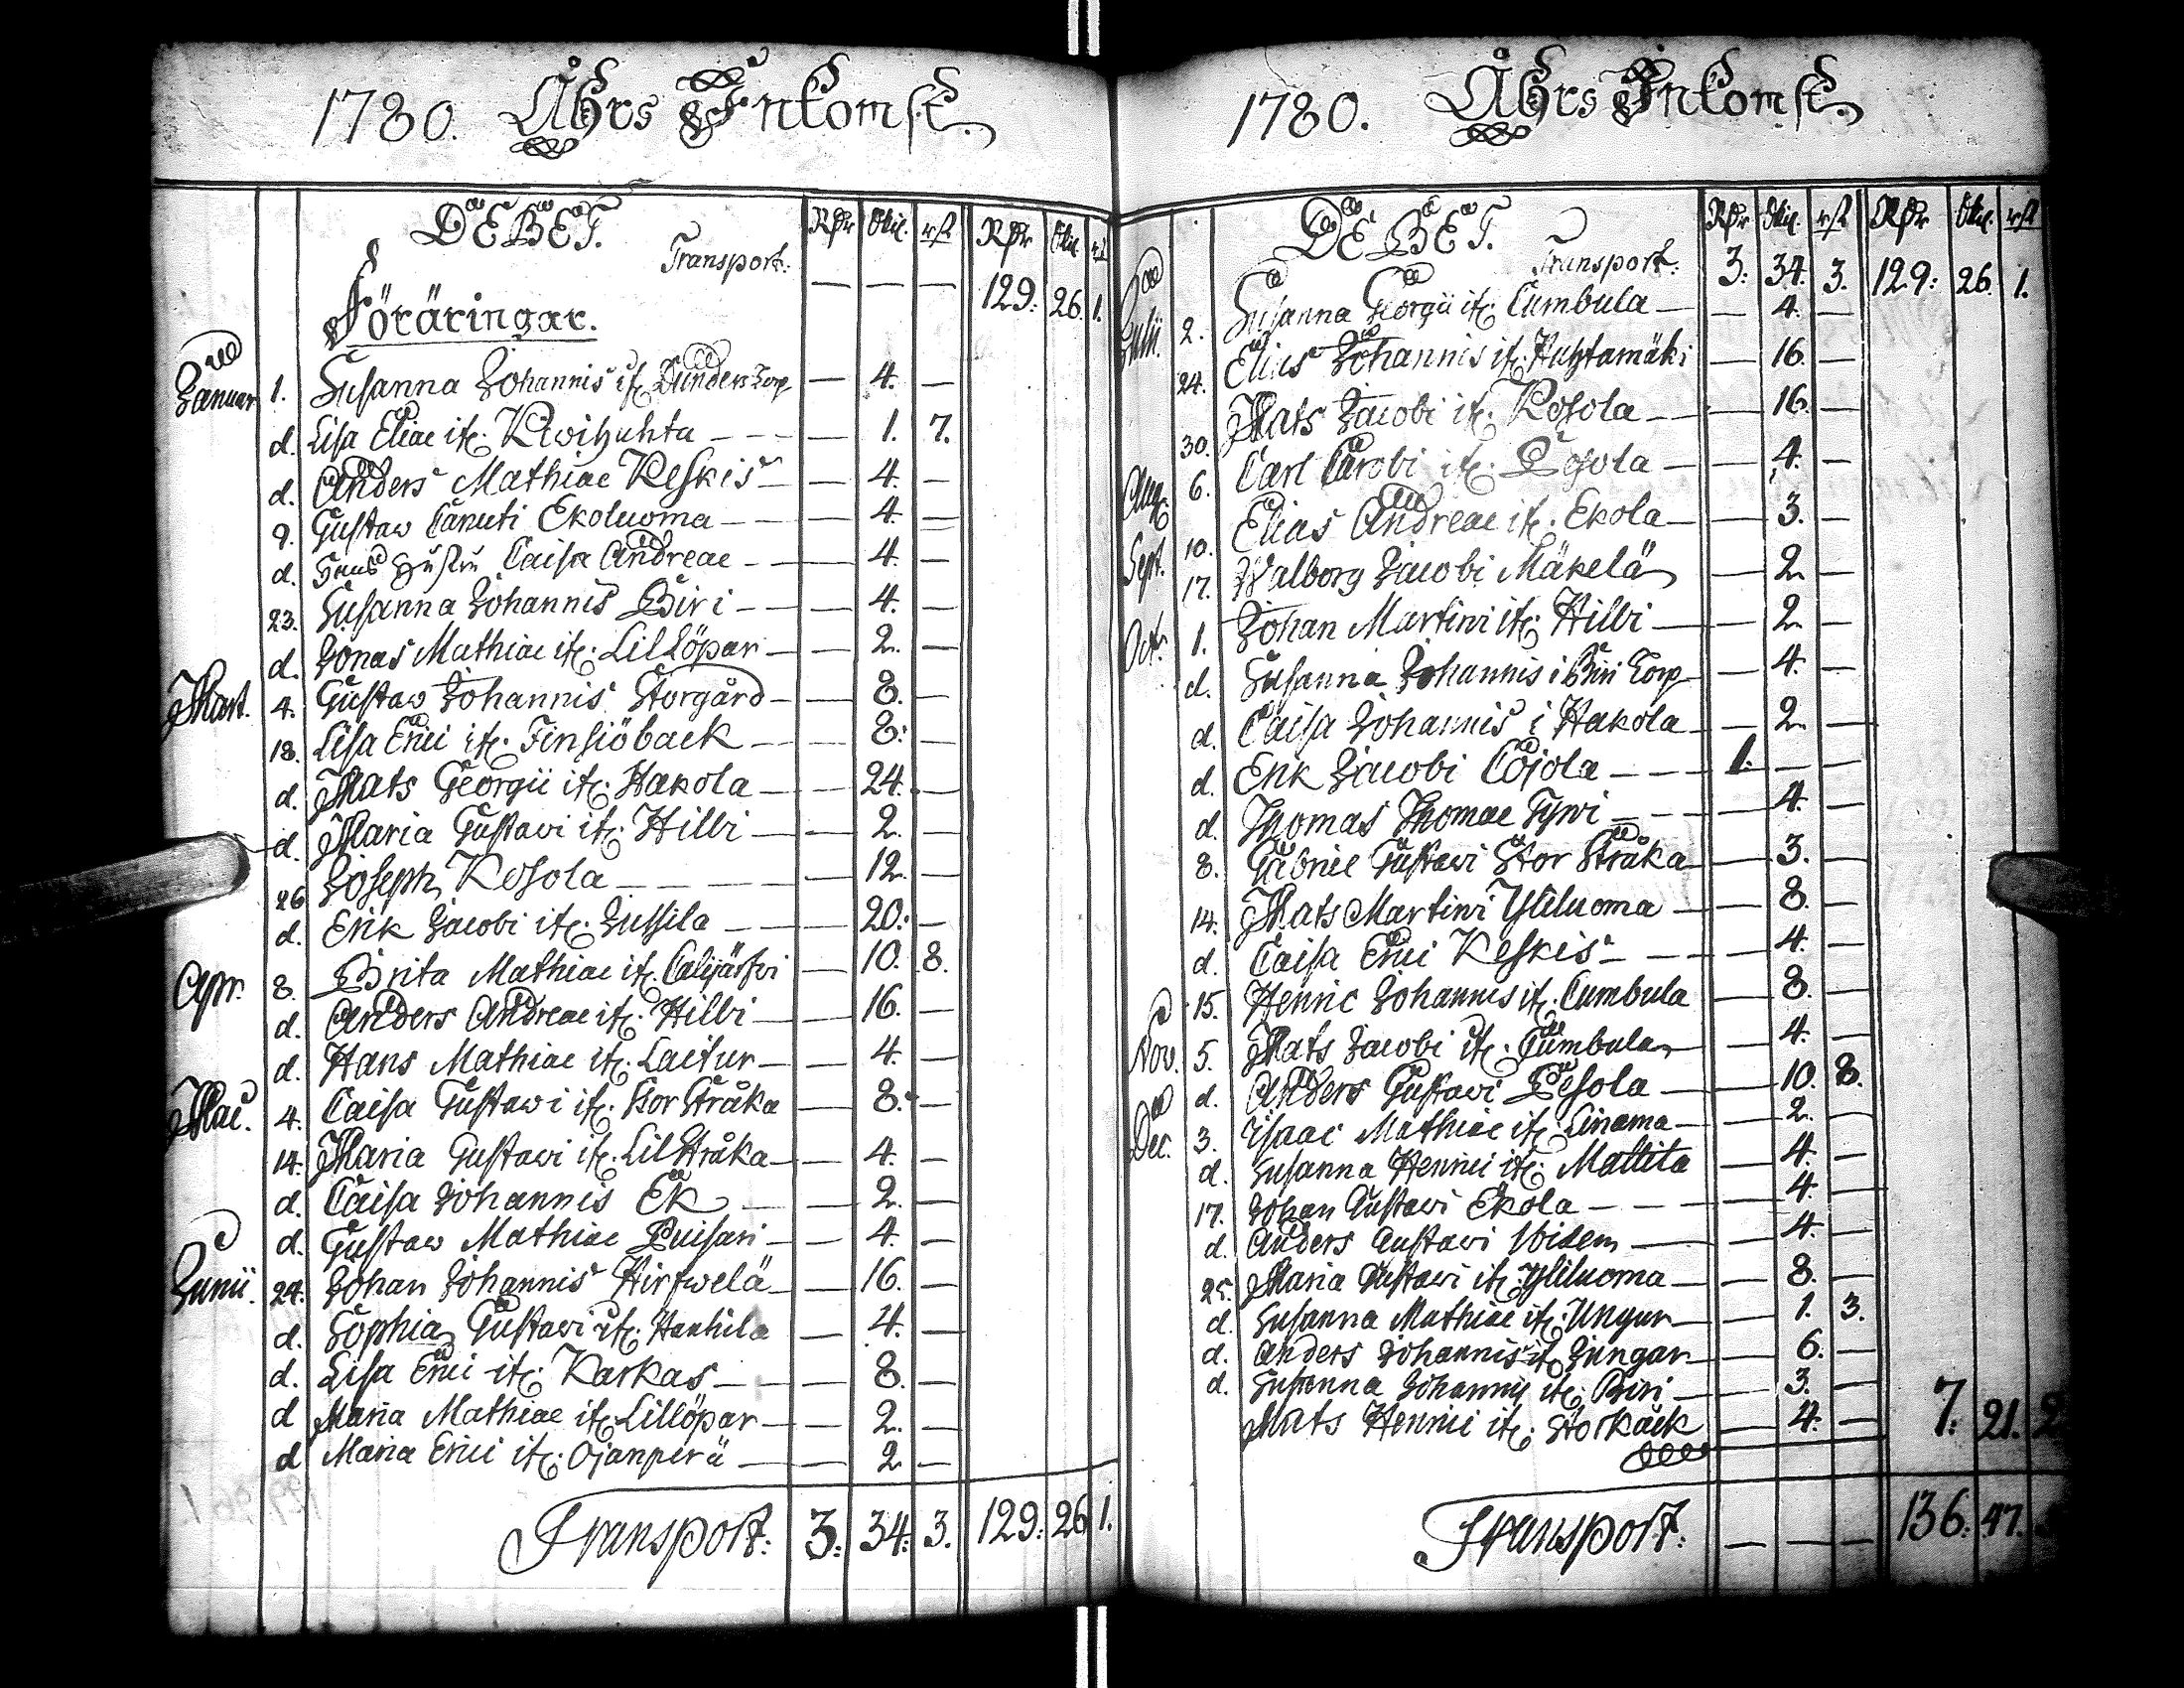 1780. Åhrs Inkomst.
DEBET. Rdr Skil. rst Rdr Skil. rst
Transport: — — — 129: 26. 1.
Föräringar.
Januar 1. Susanna Johannis itc. Dunders Torp — 4. —
d. Lisa Eliae itc. Kiwihuhta — 1. 7.
d. Anders Mathiae Keskis — 4. —
9. Gustaw Canuti Ekoluoma — 4. —
d. Hustru Caisa Andreae — 4. —
23. Susanna Johannis Biri — 4. —
d. Jonas Mathiae itc. Lillöpar — 2. —
Mart. 4. Gustaw Johannis Storgård — 8. —
18. Lisa Erici itc. Finsiöback — 8: —
d. Mats Georgii itc. Hakola — 24. —
d. Maria Gustawi itc. Hilli — 2. —
26 Joseph Kosola — 12. —
d. Erik Jacobi itc. Jussila — 20: —
Apr. 8. Brita Mathiae itc. Calijärfwi — 10. 8.
d. Anders Andreae itc. Hilli — 16. —
d. Hans Mathiae itc. Laitur — 4. —
Mai. 4. Caisa Gustawi itc. Stor Stråka — 8. —
14. Maria Gustawi itc. Lil Stråka — 4. —
d. Caisa Johannis Ek — 2. —
d. Gustaw Mathiae Puisari — 4. —
Junii. 24. Johan Johannis Hirfwelä — 16. —
d. Sophia Gustawi itc. Hanhila — 4. —
d. Lisa Erici itc. Karkas — 8. —
d Maria Mathiae itc. Lillöpar — 2. —
d Maria Erici itc. Ojanperä — 2 —
Transport: 3: 34: 3. 129: 26 1.
1780. Åhrs Inkomst.
DEBET. Rdr Skil. rst Rdr Skil. rst
Transport: 3: 34. 3. 129: 26. 1.
Julii. 2. Susanna Georgii itc. Cumbula — 4. —
24. Elias Johannis itc. Huhtamäki — 16. —
30. Mats Jacobi itc. Kosola — 16. —
Aug. 6. Carl Jacobi itc. Pesola — 4. —
Sept. 10. Elias Andreae itc. Ekola — 3. —
17. Walborg Jacobi Mäkelä — 2. —
Oct. 1. Johan Martini itc. Hilli — 2. —
d. Susanna Johannis i Biri Torp — 4. —
d. Caisa Johannis i Hakola — 2. —
d. Erik Jacobi Cojola 1. — —
d. Thomas Thomae Tyni — 4. —
8. Gabriel Gustawi Stor Stråka — 3. —
14. Mats Martini Yliluoma — 8. —
d. Caisa Erici Keskis — 4. —
15. Henric Johannis itc. Cumbula — 8. —
Nov. 5. Mats Jacobi itc. Cumbula — 4. —
d. Anders Gustawi Pesola — 10. 8.
Dec. 3. Isaac Mathiae itc. Linama — 2. —
d. Susanna Henrici itc. Mattila — 4. —
17. Johan Gustawi Ekola — 4. —
d. Anders Gustawi Widem — 4. —
25. Maria Gustawi itc. Yliluoma — 8. —
d. Susanna Mathiae itc. Ungur — 1. 3.
d. Anders Johannis itc. Jungar — 6. —
d. Susanna Johannis itc. Biri — 3. —
Mats Henrici itc. Storkåck — 4. — 7: 21. 2
Transport: — — — 136: 47.